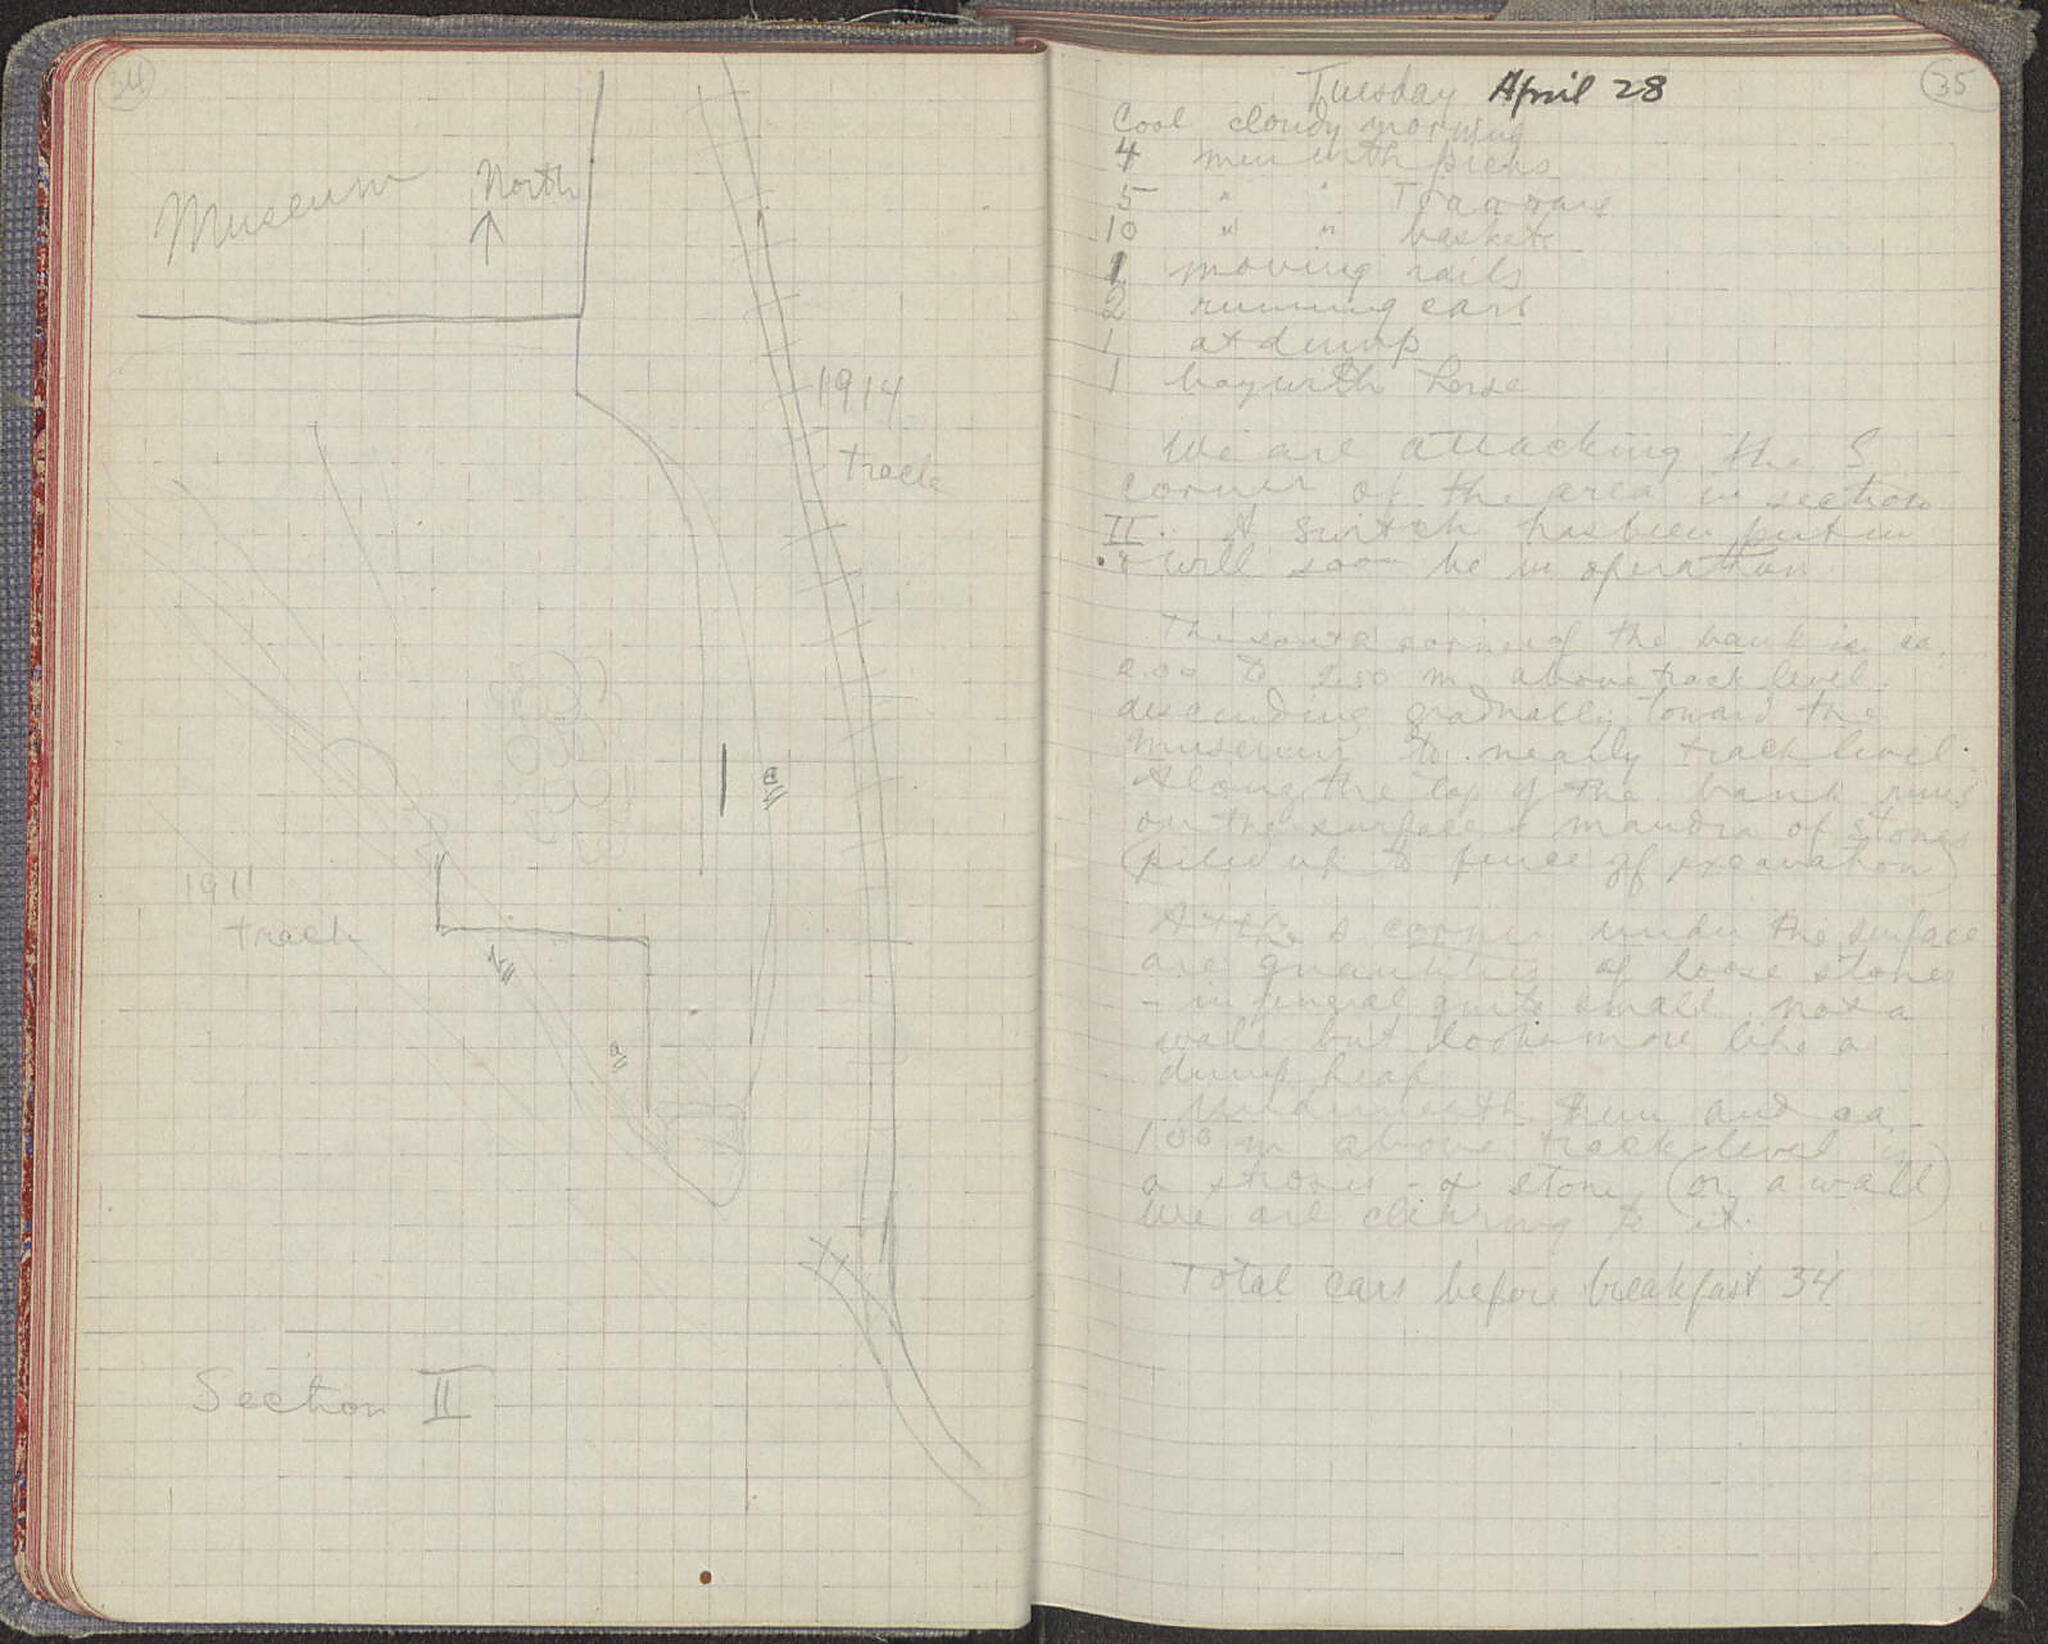 34
Museum
North
1914
track
1911
track
Section II
35
Tuesday April 28
Cool cloudy morning
4 men with picks
5 " "
10 " " baskets
1 moving rails
2 running cars
1 at dump
1 boy with horse
We are attacking the S
corner of the area in section
II. A switch has been put in
& will soon be in operation
The south corner of the bank is ca.
2.00 to 2.50 m above track level.
descending gradually toward the
museum to nearly track level.
Along the top of the bank runs
on the surface a mandra of stones
(piled up to fence off excavation)
At the S corner under the surface
are quantities of loose stones
- in general quite small not a
wall but looks more like a
dump heap
Underneath them and ca.
1.00 m above track level is
a stone (or a wall)
We are clearing to it.
Total cars before breakfast 34